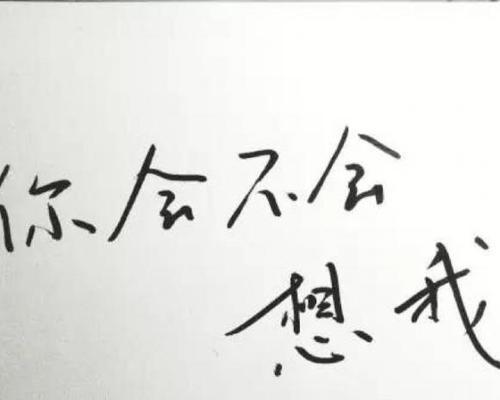 你会不会
想我